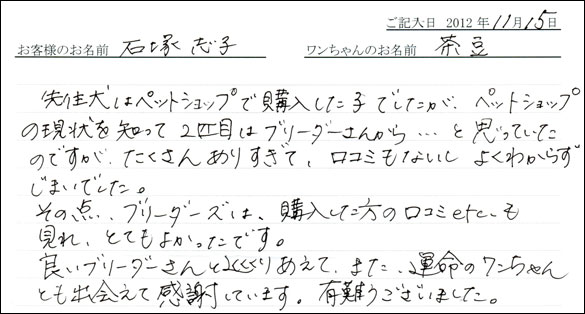 ご記入日 2012年11月15日
お客様のお名前 石塚 志子 ワンちゃんのお名前 茶豆
先住犬はペットショップで購入した子でしたが、ペットショップ
の現状を知って2匹目はブリーダーさんから…と思っていた
のですが、たくさんありすぎて、口コミもないし よくわからず
じまいでした。
その点、ブリーダーズは、購入した方の口コミetc.も
見れ、とてもよかったです。
良いブリーダーさんとめぐりあえて、また、運命のワンちゃん
とも出会えて感謝しています。有難うございました。